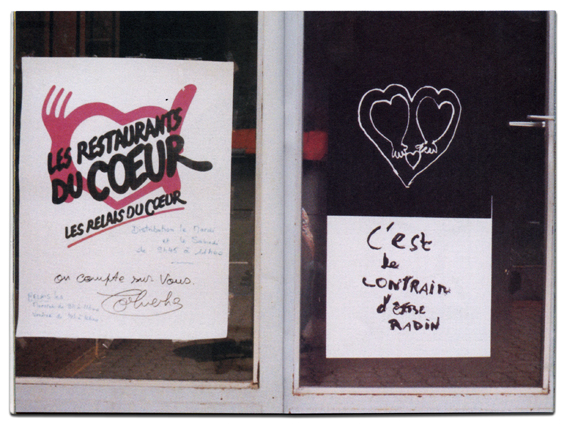 LES RESTAURANTS
DU COEUR
LES RELAIS DU COEUR
Distribution le Mardi
et le
de
on compte sur Vous.
Coluche
c'est
le
CONTRAIRE
d'être
RADIN